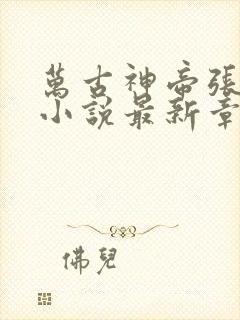 萬古神帝張
小說最新章
佛兒